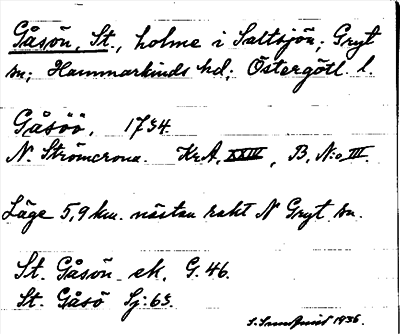 Gåsön, St., holme i Saltsjön; Gryt
sn; Hammarkinds hd; Östergötl. l.
Gåsöö, 1734.
N. Strömcrona. Kr.A, XXIV, B, N:o III.
Läge 5,9 km. nästan rakt N Gryt sn.
St. Gåsön ek. G. 46.
St. Gåsö Sj: 63.
S. Sundquist 1936.